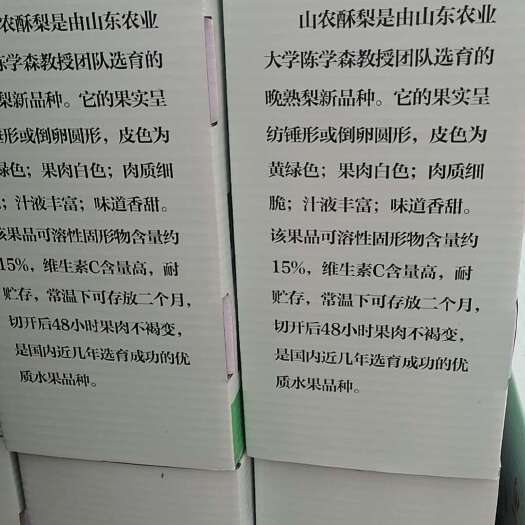 农酥梨是由山东农业
陈学森教授团队选育的
梨新品种。它的果实呈
锤形或倒卵圆形，皮色为
绿色；果肉白色；肉质细
；汁液丰富；味道香甜。
该果品可溶性固形物含量约
15%，维生素C含量高，耐
贮存，常温下可存放二个月，
切开后48小时果肉不褐变，
是国内近几年选育成功的优
质水果品种。
山农酥梨是由山东农业
大学陈学森教授团队选育的
晚熟梨新品种。它的果实呈
纺锤形或倒卵圆形，皮色为
黄绿色；果肉白色；肉质细
脆；汁液丰富；味道香甜。
该果品可溶性固形物含量约
15%，维生素C含量高，耐
贮存，常温下可存放二个月，
切开后48小时果肉不褐变，
是国内近几年选育成功的优
质水果品种。